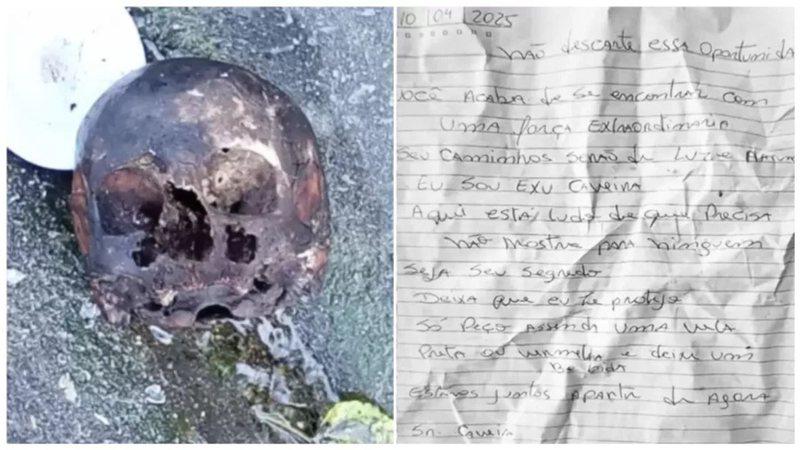 10 04 2025
Não descarte essa oportunida
Você acaba de se encontrar com
uma força extraordinária
Seu caminhos serão de luz e
Eu sou Exu Caveira
Aqui está tudo de que precisa
Não mostre para ninguem
Seja seu segredo
Deixa que eu te proteja
Só peço acenda uma vela
Preta ou vermelha e deixe um
Bebida
Estares juntos aparti de agora
Sr. Caveira